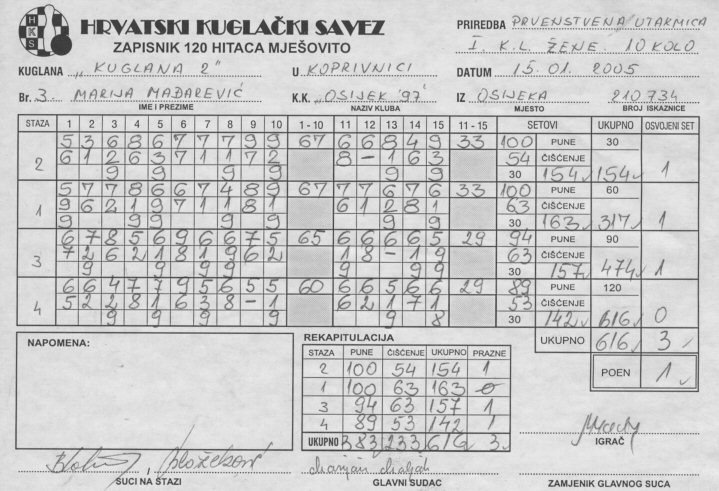 HRVATSKI KUGLAČKI SAVEZ
ZAPISNIK 120 HITACA MJEŠOVITO
HKS
PRIREDBA PRVENSTVENA UTAKMICA
I. K.L. ŽENE 10 KOLO
KUGLANA "KUGLANA 2" U KOPRIVNICI DATUM 15.01.2005
Br. 3. MARIJA MAĐAREVIĆ K.K. "OSIJEK '97" IZ OSIJEKA 210734
IME I PREZIME NAZIV KLUBA MJESTO BROJ ISKAZNICE
STAZA 1 2 3 4 5 6 7 8 9 10 1 - 10 11 12 13 14 15 11 - 15 SETOVI UKUPNO OSVOJENI SET
5 3 6 8 6 7 7 7 9 9 67 6 6 8 4 9 33 100 PUNE 30
2 6 1 2 6 3 7 1 1 7 2 8 - 1 6 3 54 ČIŠĆENJE 1
9 9 9 9 9 9 30 154 154
5 7 7 8 6 6 7 4 8 9 67 7 7 6 7 6 33 100 PUNE 60
1 9 6 2 1 9 7 1 1 8 1 6 1 2 8 1 63 ČIŠĆENJE 1
9 9 9 9 9 9 30 163 317
6 7 8 5 6 9 6 6 7 5 65 6 6 6 6 5 29 94 PUNE 90
3 7 2 6 2 1 8 1 9 6 2 1 8 - 1 9 63 ČIŠĆENJE 1
9 9 9 9 9 9 9 30 157 474
6 6 4 7 7 9 5 6 5 5 60 6 6 5 6 6 29 89 PUNE 120
4 5 2 2 8 1 6 3 8 - 1 6 2 1 7 1 53 ČIŠĆENJE 0
9 9 9 9 8 30 142 616
UKUPNO 616 3
POEN 1
NAPOMENA:
REKAPITULACIJA
STAZA PUNE ČIŠĆENJE UKUPNO PRAZNE
2 100 54 154 1
1 100 63 163 0
3 94 63 157 1
4 89 53 142 1
UKUPNO 383 233 616 3
IGRAČ
SUCI NA STAZI GLAVNI SUDAC ZAMJENIK GLAVNOG SUCA